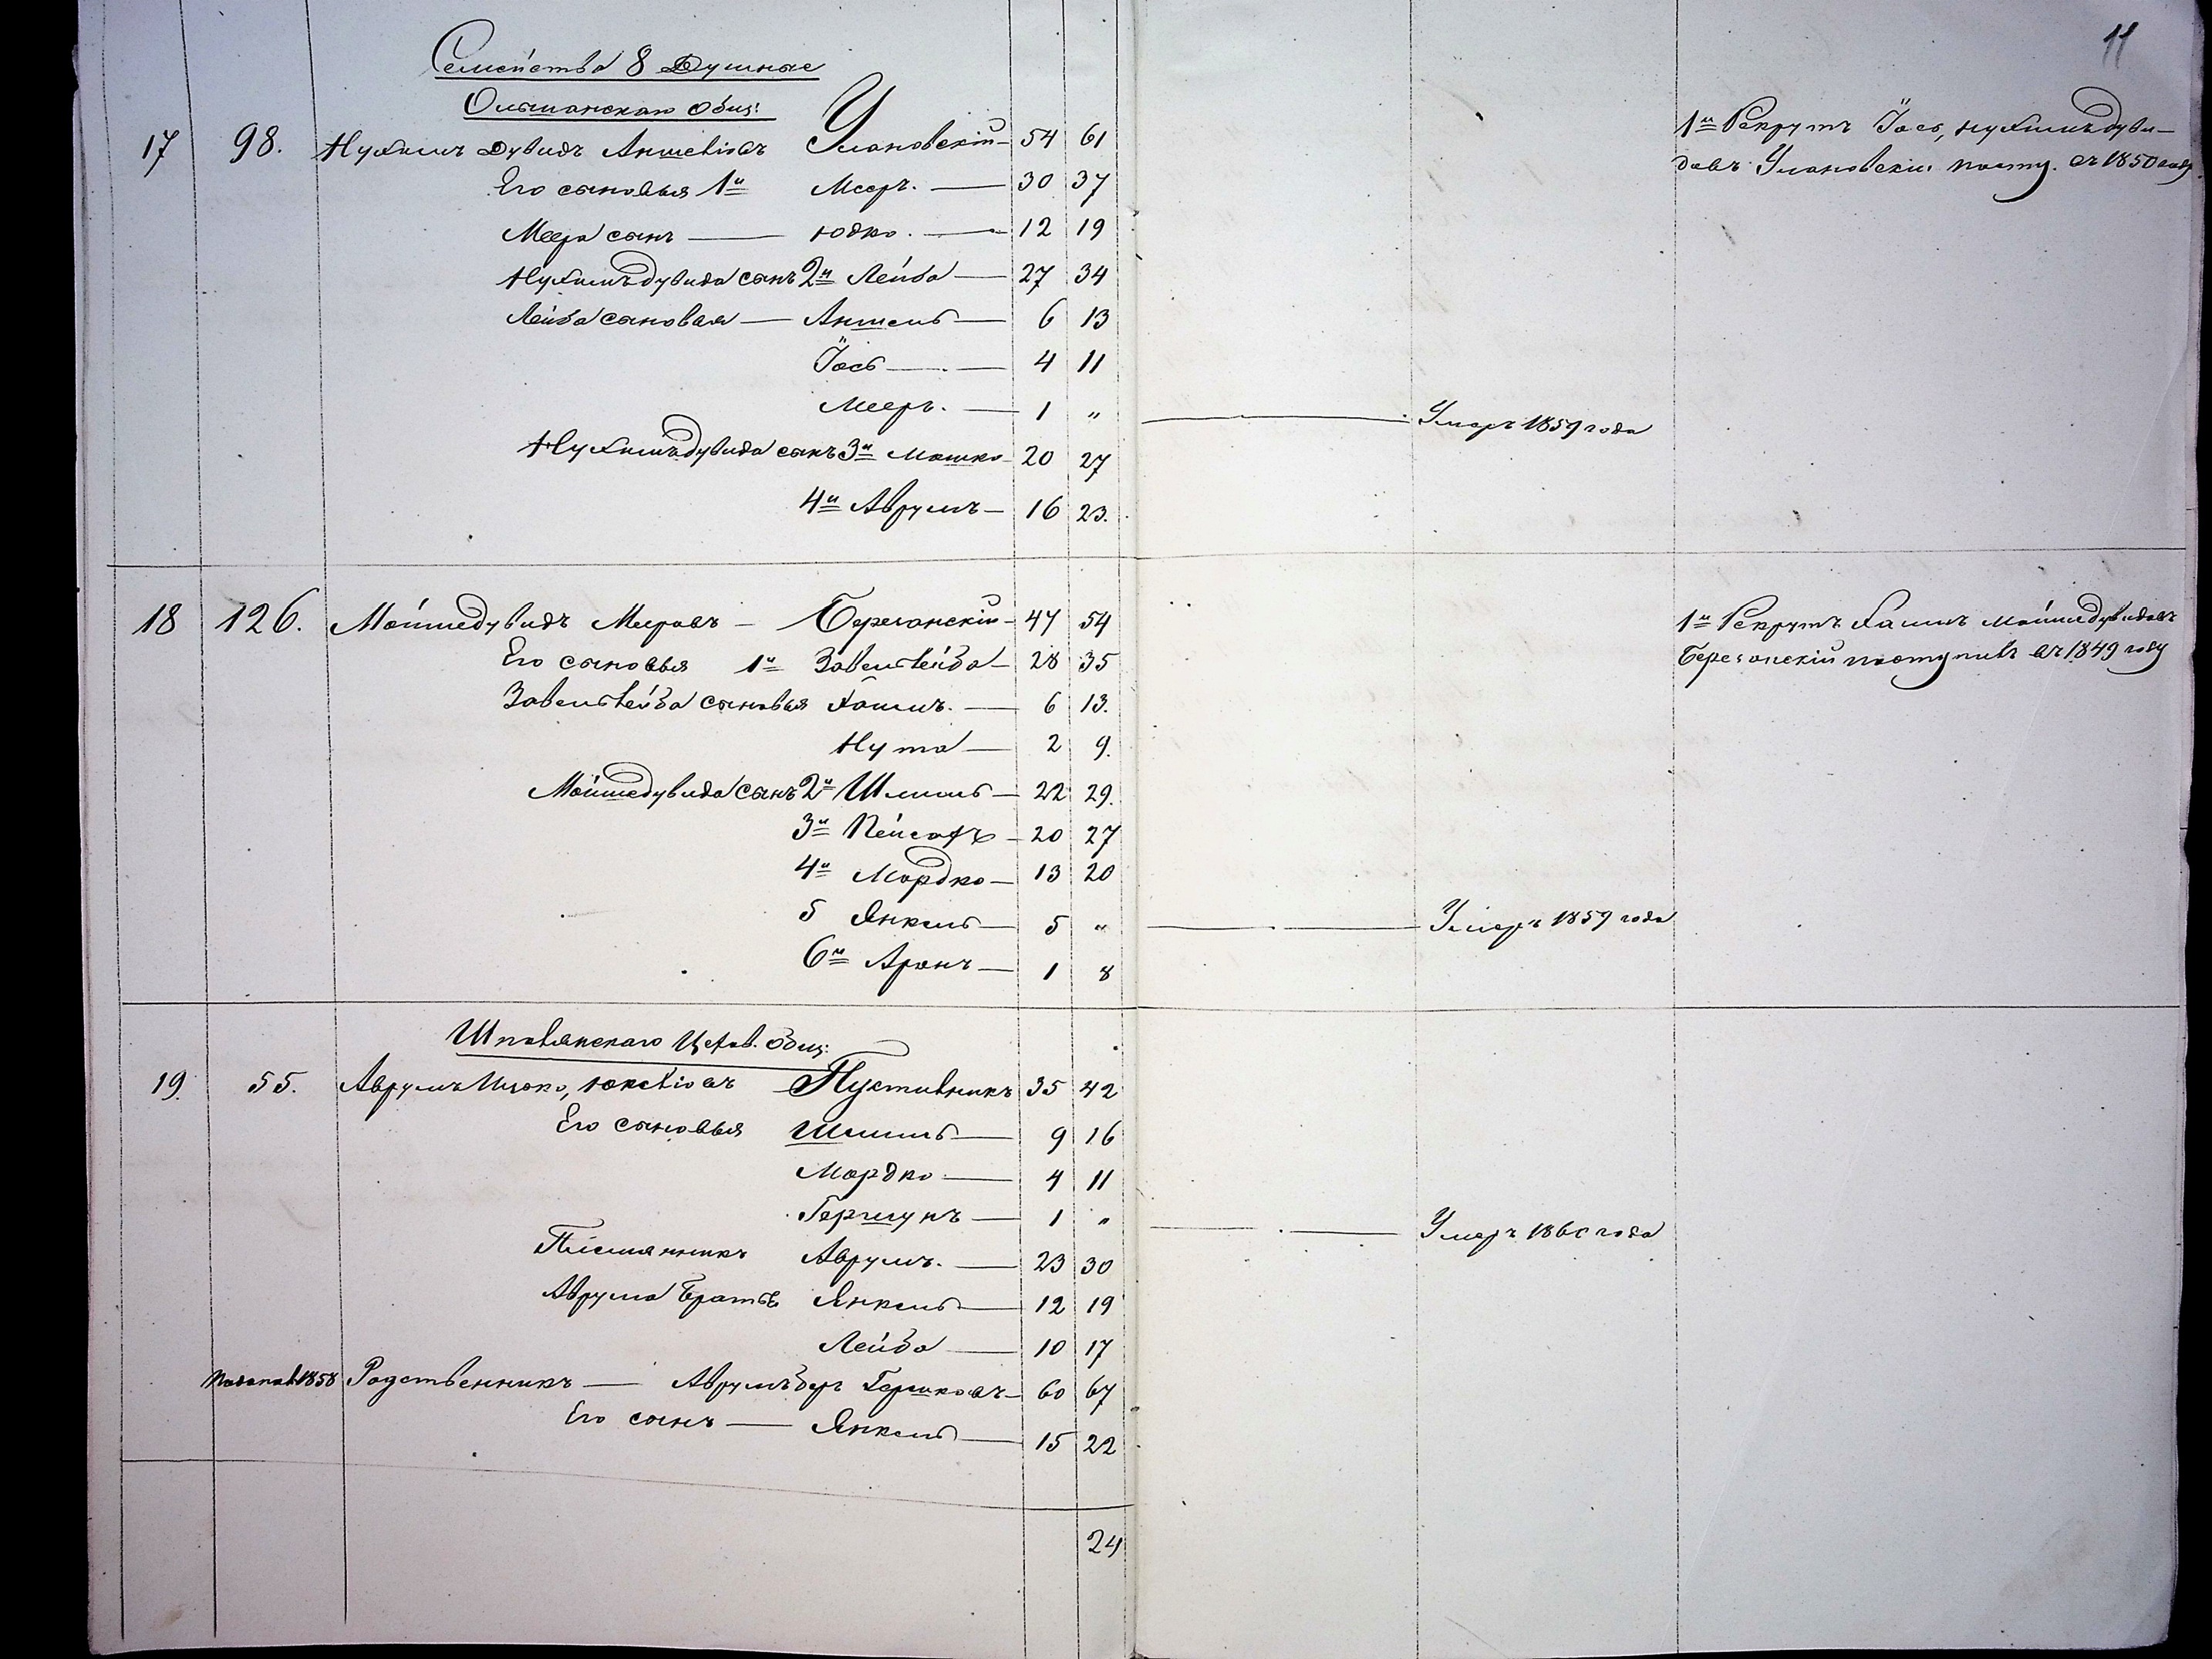 11
Семейства 8 Душные
Ольшанскаго общ:
17 98. Нухимъ Дувидъ Аншелiовъ Улановскiй 54 61
1й Рекрутъ Iось, Нухимъ дуви-
довъ Улановскiй посту. въ 1850 году
Его сыновья 1й Мееръ. 30 37
Меера сынъ Юдко. 12 19
Нухимъ дувида сынъ 2й Лейба 27 34
Лейба сыновья Аншель 6 13
Iось 4 11
Мееръ. 1 " Умеръ 1859 года
Нухимъ дувида сынъ 3й Мошко 20 27
4й Аврумъ 16 23.
18 126. Мойшедувидъ Меровъ Береганскiй 47 54
1й Рекрутъ Хаимъ Мойшедувидовъ
Береганскiй поступилъ въ 1849 году
Его сыновья 1й Завельлейба 28 35
Завельлейба сыновья Хаимъ. 6 13.
Нута 2 9.
Мойшедувида сынъ 2й Шмиль 22 29.
3й Пейсахъ 20 27
4й Мордко 13 20
5 Янкель 5 " Умеръ 1859 года
6й Аронъ 1 8
Шполянскаго Цехов. общ:
19. 55. Аврумъ Ицко, Юкелiовъ Пустильникъ 35 42
Его сыновья Шмиль 9 16
Мордко 4 11
Гершунъ 1 " Умеръ 1860 года
Племянникъ Аврумъ. 23 30
Аврума братья Янкель 12 19
Лейба 10 17
1858 Родственникъ Аврумъ беръ Гершковъ 60 67
Его сынъ Янкель 15 22
24